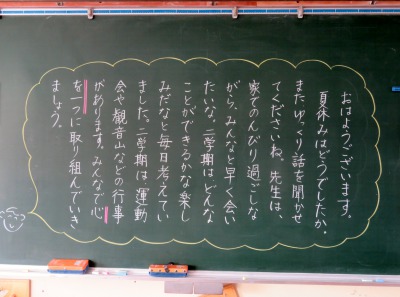 おはようございます。
夏休みはどうでしたか。
またゆっくり話を聞かせ
てくださいね。先生は、
家でのんびり過ごしな
がら、みんなと早く会い
たいな。二学期はどんな
ことができるかな楽し
みだなと毎日考えてい
ました。二学期は運動
会や観音山などの行事
があります。みんなで心
を一つに取り組んでいき
ましょう。